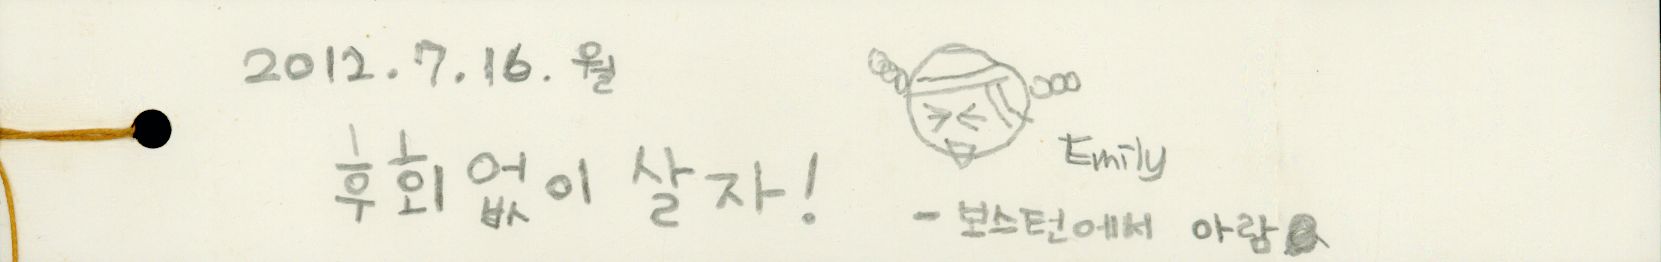 2012.7.16.월
후회 없이 살자!
Emily
- 보스턴에서 아람